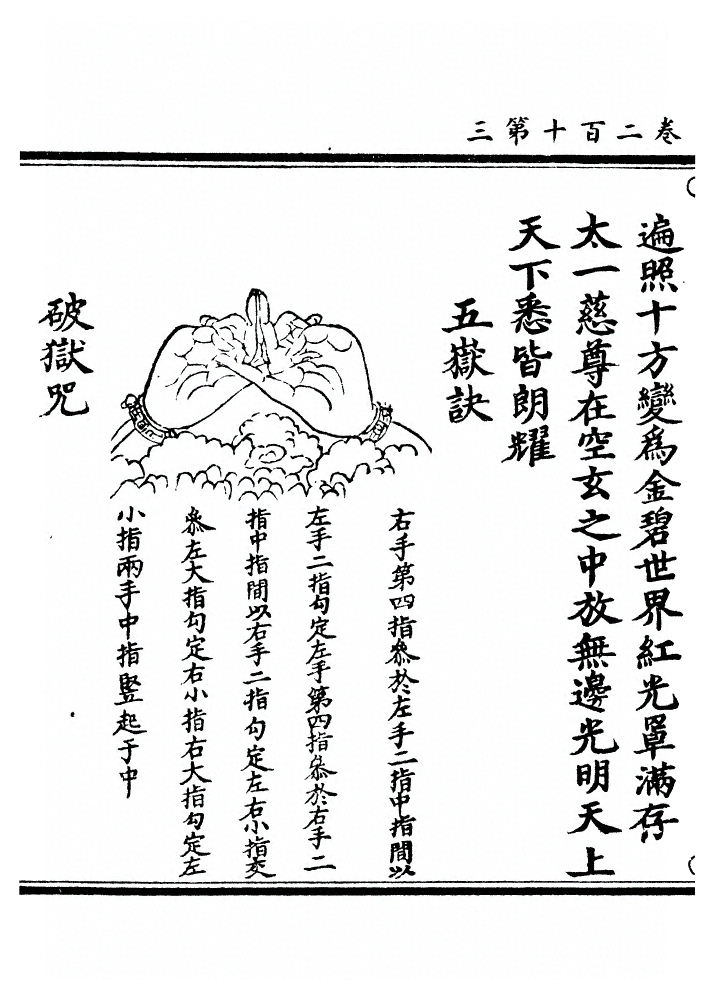 卷二百十第三
遍照十方變爲金碧世界紅光罩滿存
太一慈尊在空玄之中放無邊光明天上
天下悉皆朗耀
五嶽訣
右手第四指叅於左手二指中指間以
左手二指勾定左手第四指叅於右手二
指中指間以右手二指勾定左右小指交
叅左大指勾定右小指右大指勾定左
小指兩手中指豎起于中
破獄咒